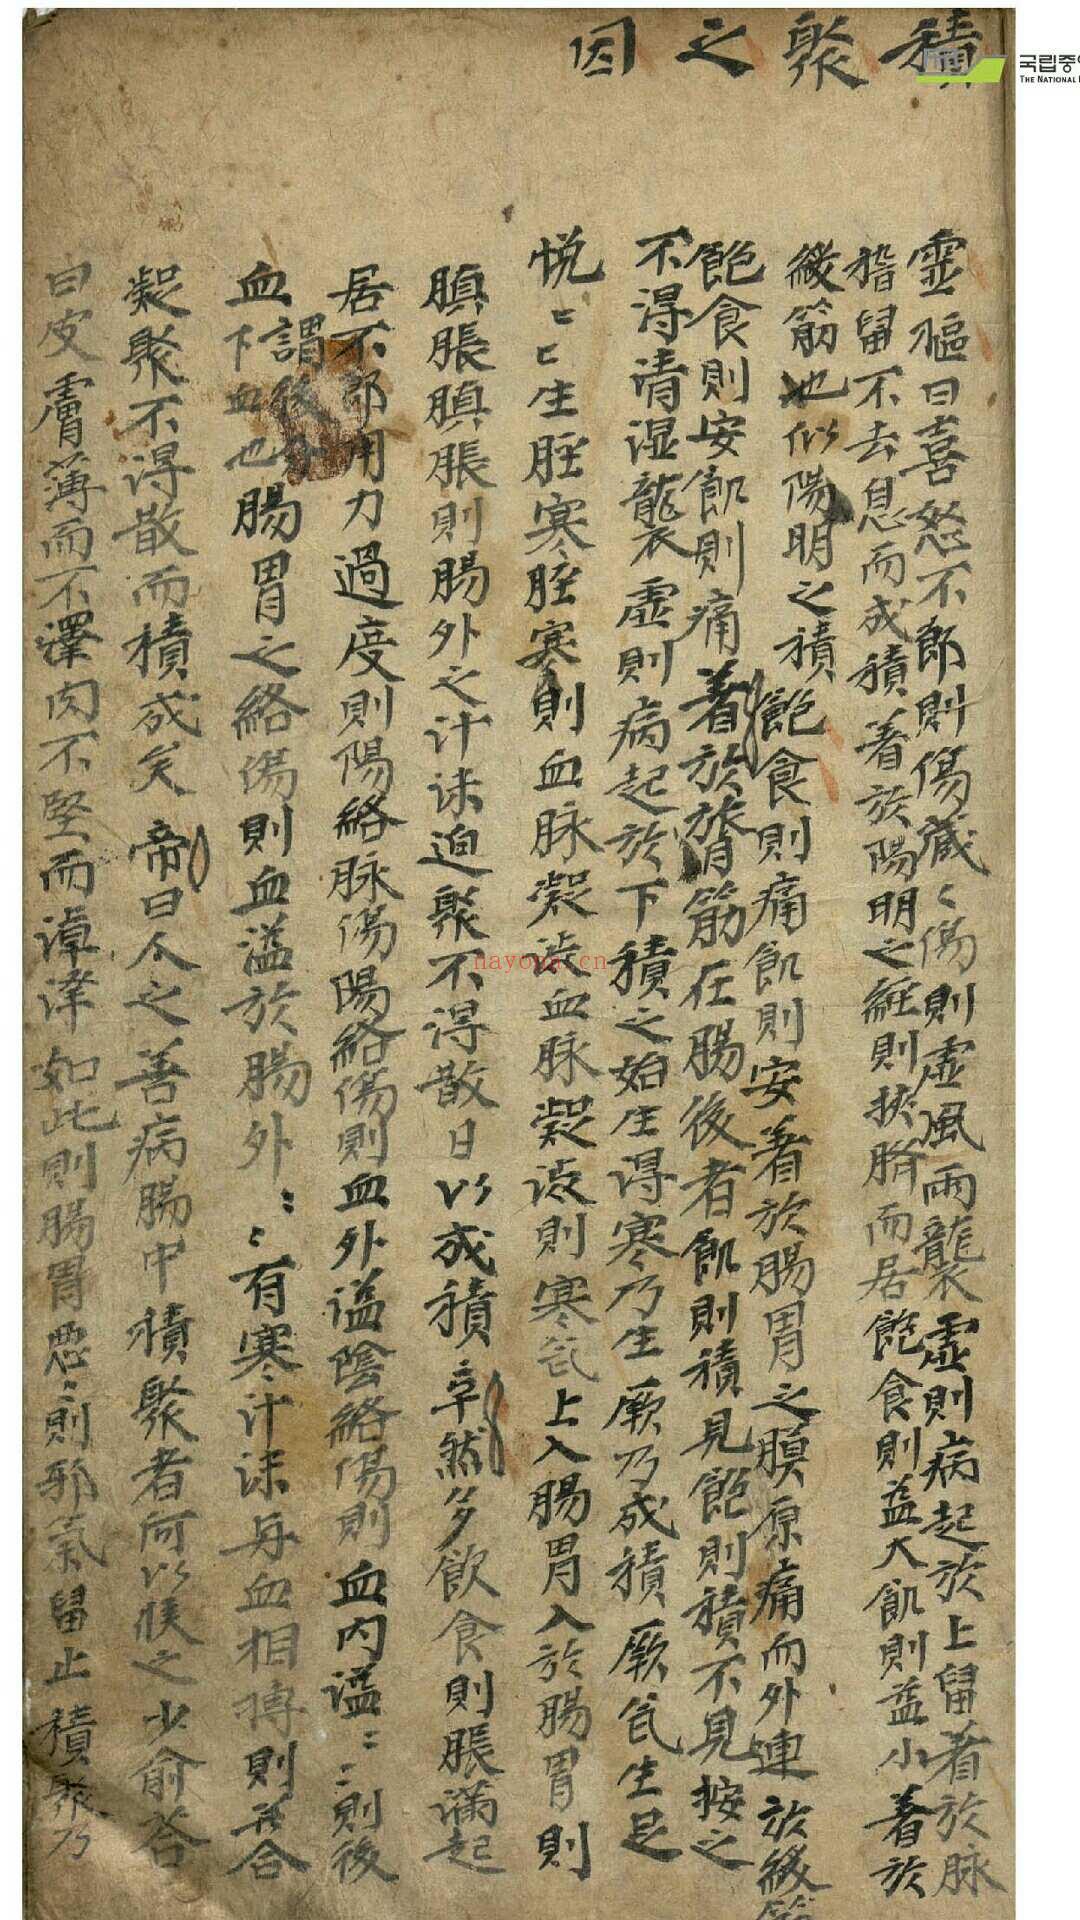 積聚之因
국립중앙
THE NATIONAL
靈樞曰喜怒不節則傷藏〻傷則虛風雨襲虛則病起於上留着於脉
稽留不去息而成積着於陽明之經則挾臍而居飽食則益大飢則益小着於
緩筋也似陽明之積飽食則痛飢則安着於腸胃之膜原痛而外連於緩筋
飽食則安飢則痛着於膂筋在腸後者飢則積見飽則積不見按之
不得清湿襲虛則病起於下積之始生得寒乃生厥乃成積厥气生足
悗〻〻生脛寒脛寒則血脉凝澁血脉凝澁則寒气上入腸胃入於腸胃則
䐜脹䐜脹則腸外之汁沫迫聚不得散日以成積卒然多飲食則脹滿起
居不節用力過度則陽絡脉傷陽絡傷則血外溢陰絡傷則血内溢〻〻則後
血謂後分下血也腸胃之絡傷則血溢於腸外〻〻有寒汁沫与血相搏則并合
凝聚不得散而積成矣帝曰人之善病腸中積聚者何以候之少俞答
曰皮膚薄而不澤肉不堅而淖澤如此則腸胃惡〻則邪氣留止積聚乃
nayona.cn